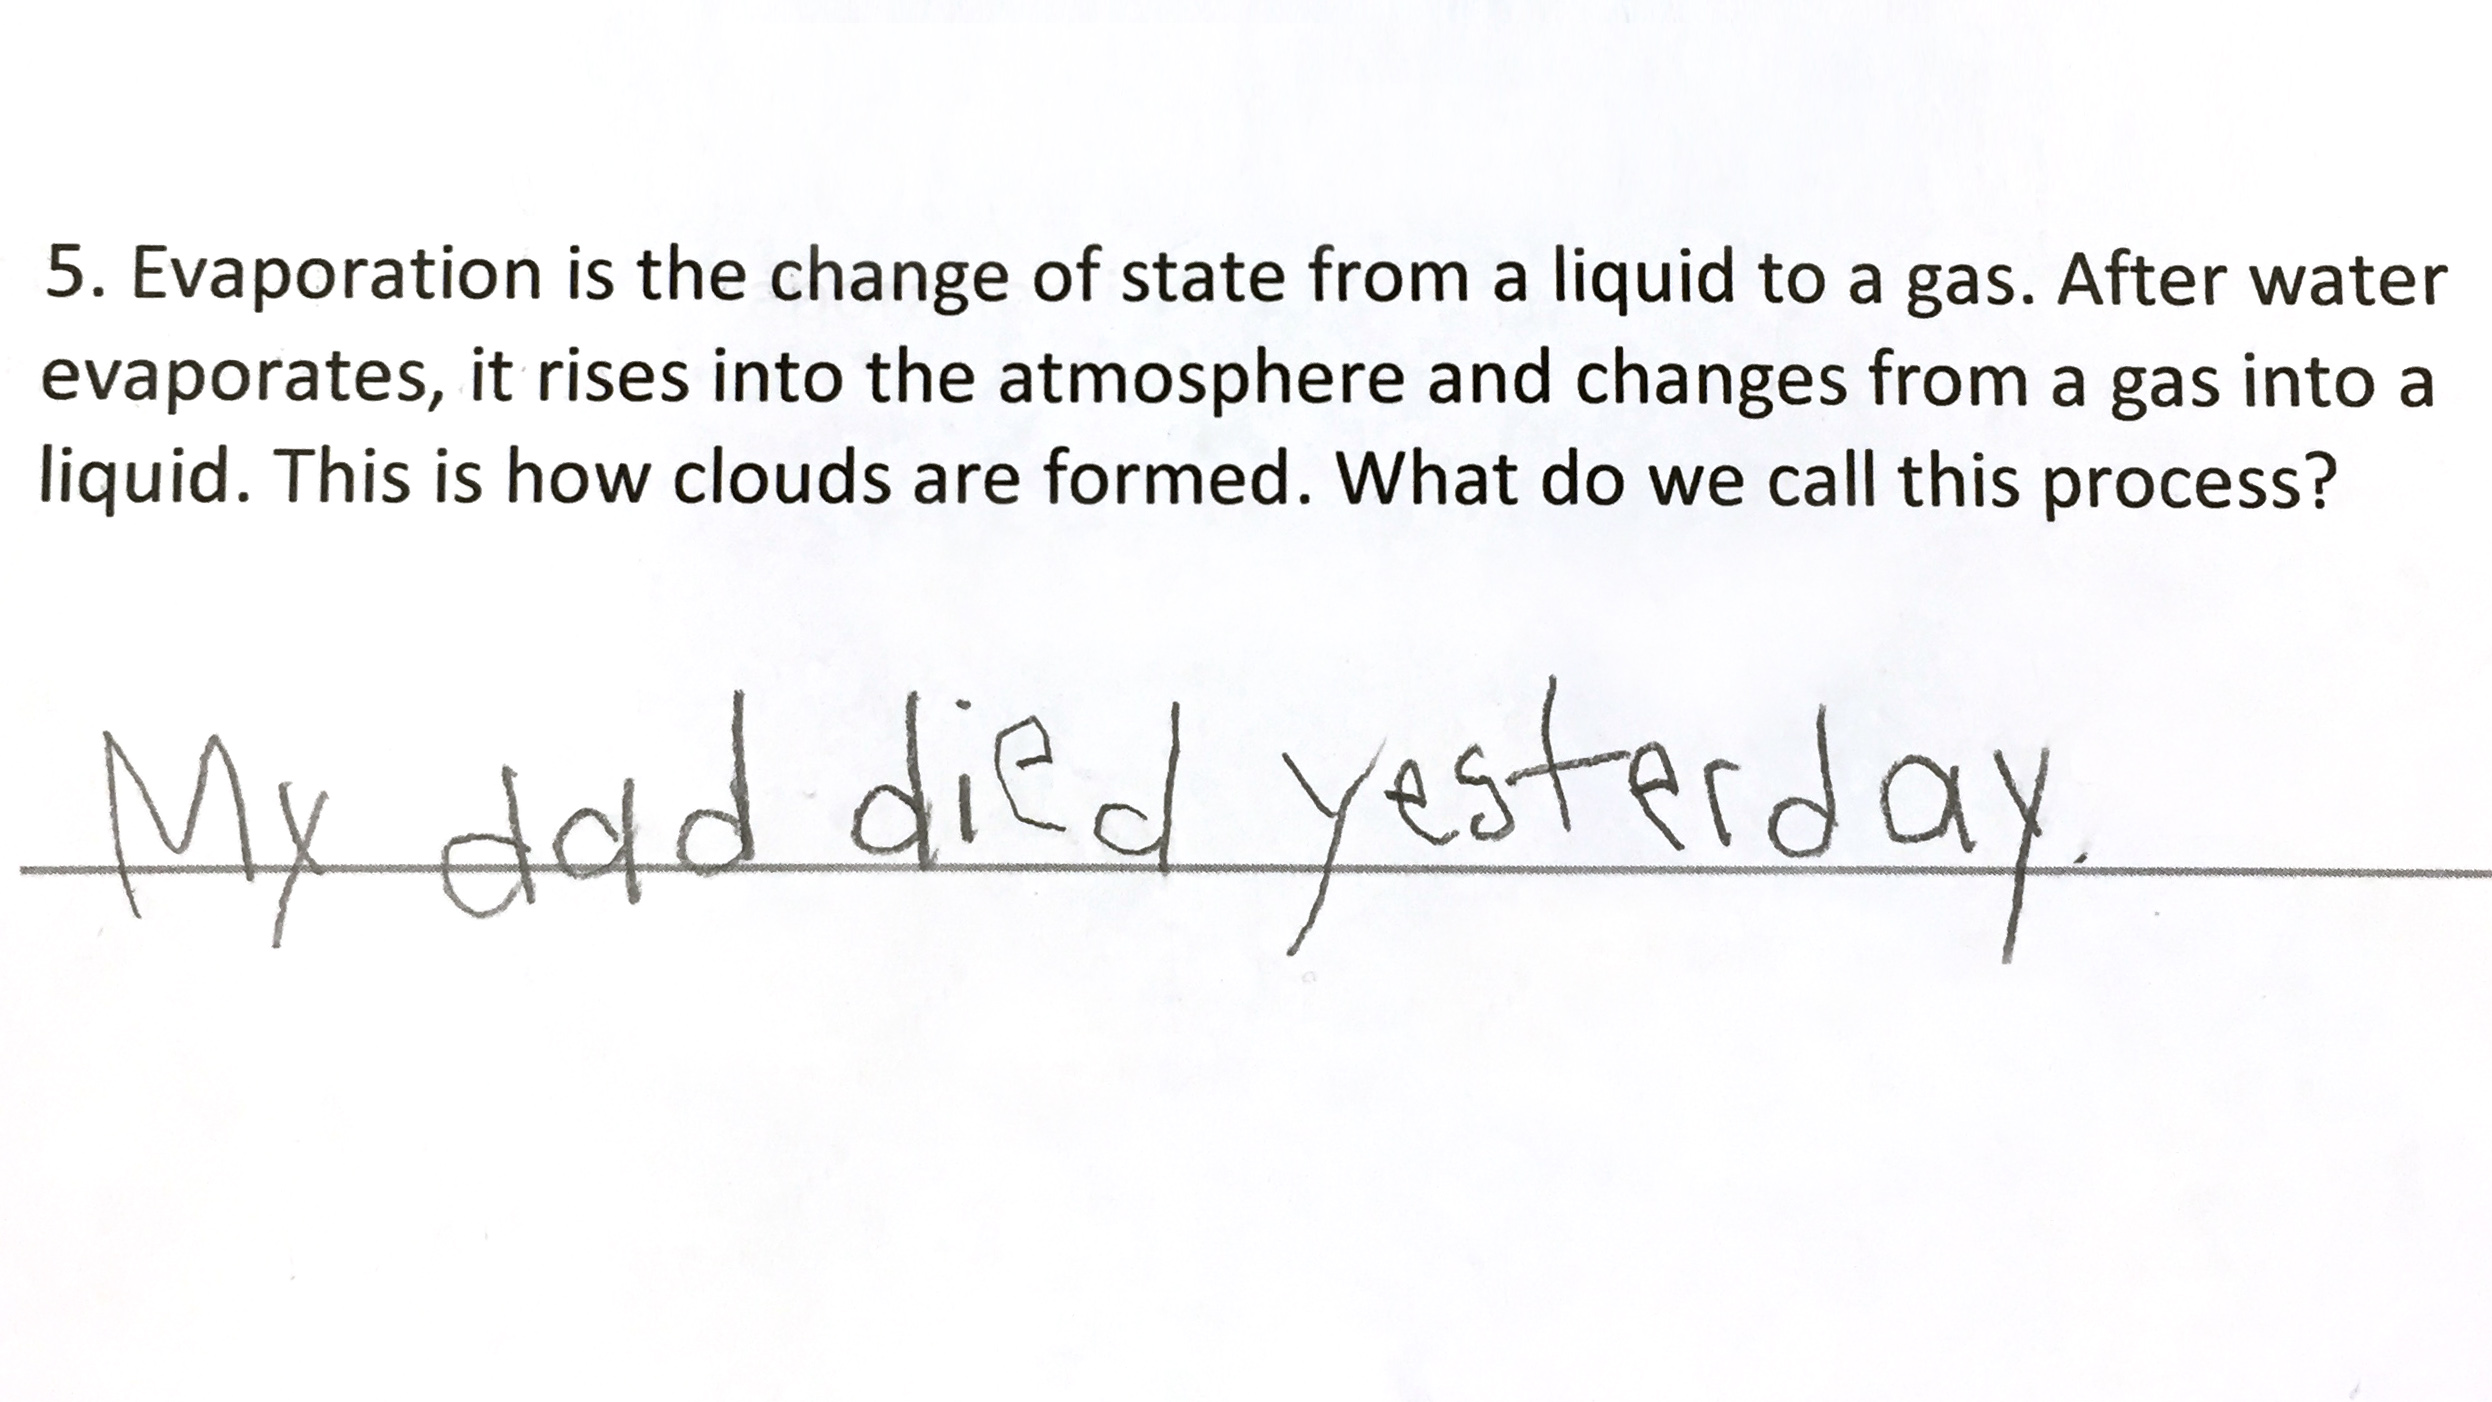 5. Evaporation is the change of state from a liquid to a gas. After water
evaporates, it rises into the atmosphere and changes from a gas into a
liquid. This is how clouds are formed. What do we call this process?
My dad died yesterday.